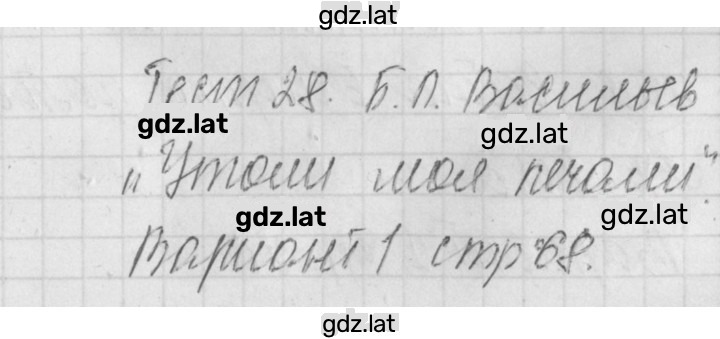 gdz.lat
Тест 28. Б. Л. Васильев
gdz.lat
gdz.lat
„Утоли моя печали"
gdz.lat
gdz.lat
Вариант 1 стр 68.
gdz.lat